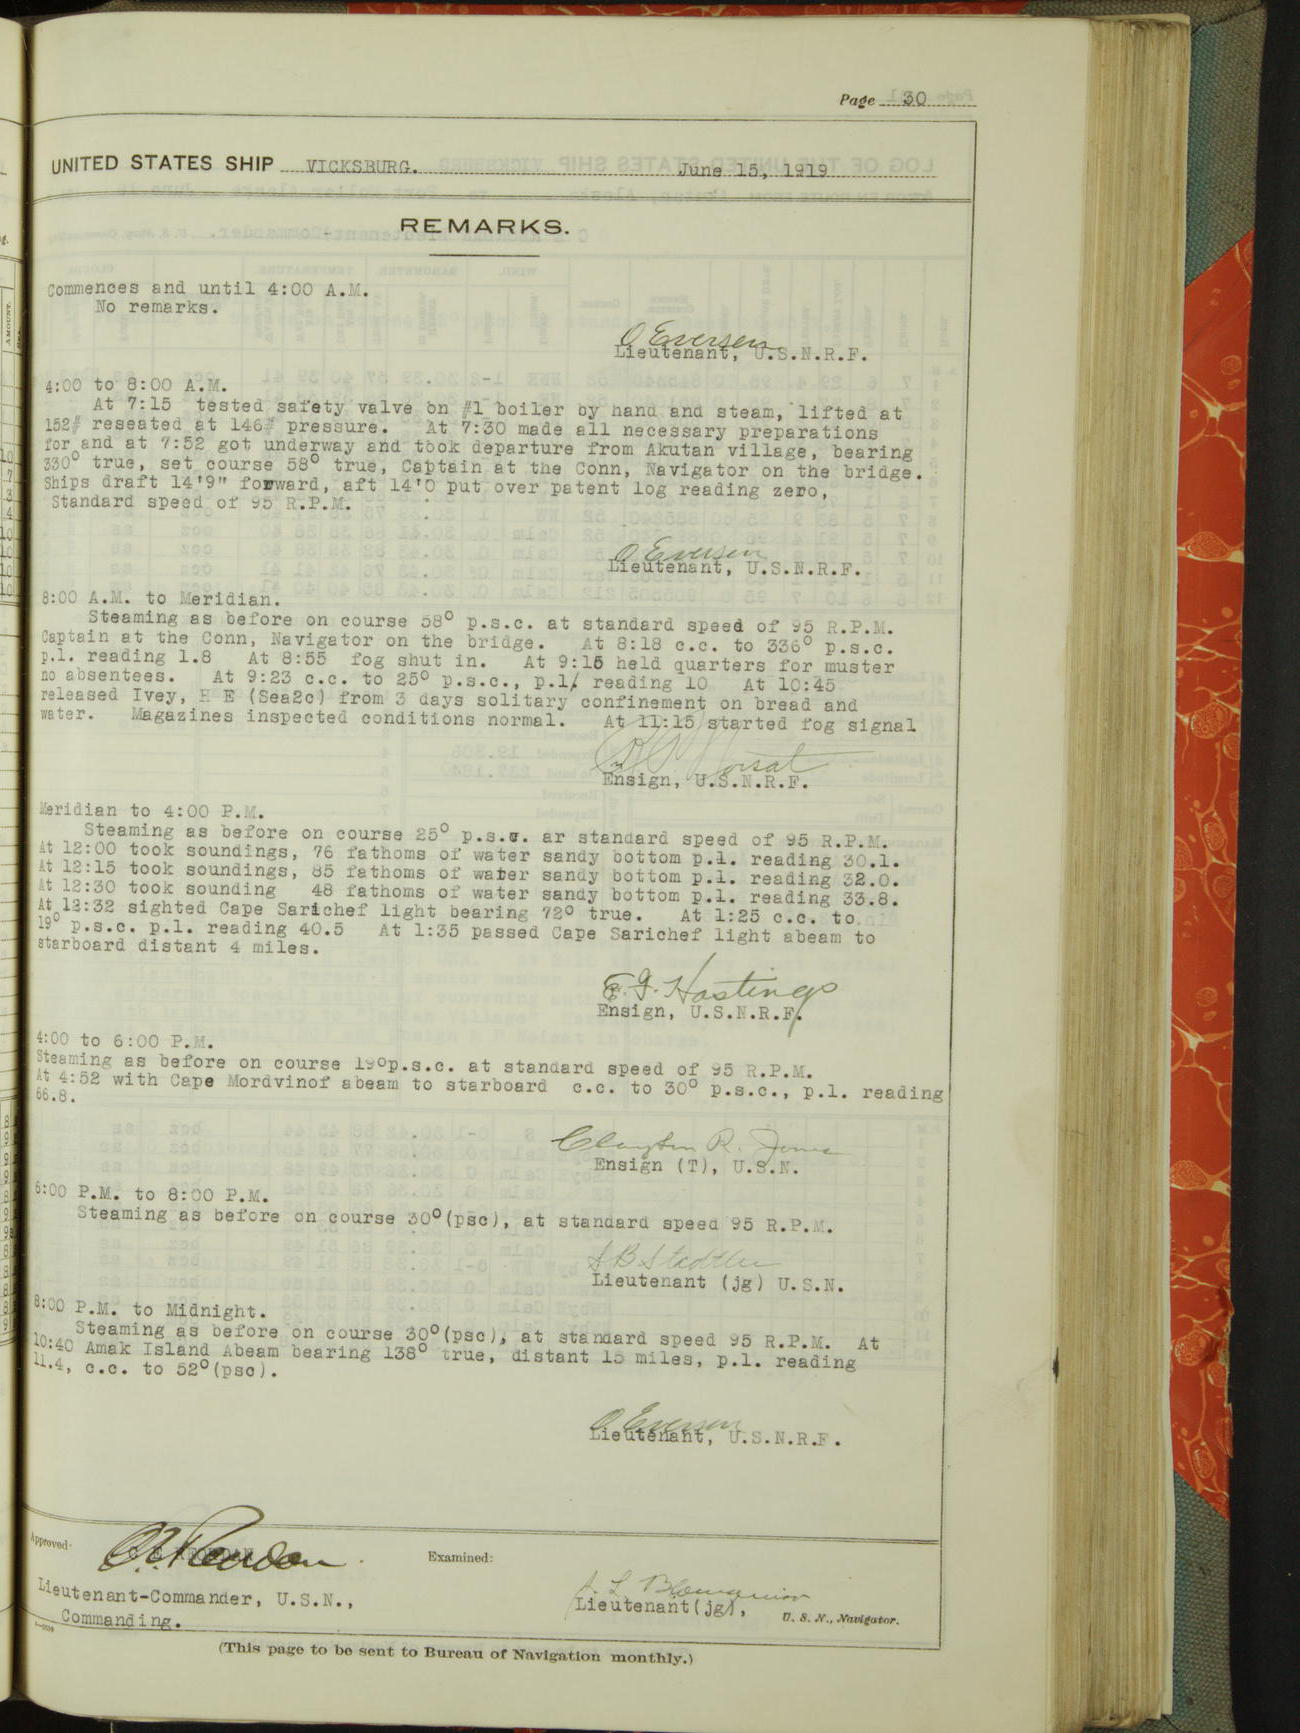 Page 30
UNITED STATES SHIP VICKSBURG. June 15, 1919
REMARKS.
Commences and until 4:00 A.M.
No remarks.
O Eversen
Lieutenant, U.S.N.R.F.
4:00 to 8:00 A.M.
At 7:15 tested safety valve on #1 boiler by hand and steam, lifted at
152# reseated at 146# pressure. At 7:30 made all necessary preparations
for and at 7:52 got underway and took departure from Akutan village, bearing
330° true, set course 58° true, Captain at the Conn, Navigator on the bridge.
Ships draft 14'9" forward, aft 14'0 put over patent log reading zero,
Standard speed of 95 R.P.M.
O Eversen
Lieutenant, U.S.N.R.F.
8:00 A.M. to Meridian.
Steaming as before on course 58° p.s.c. at standard speed of 95 R.P.M.
Captain at the Conn, Navigator on the bridge. At 8:18 c.c. to 336° p.s.c.
p.l. reading 1.8 At 8:55 fog shut in. At 9:15 held quarters for muster
no absentees. At 9:23 c.c. to 25° p.s.c., p.l. reading 10 At 10:45
released Ivey, H E (Sea2c) from 3 days solitary confinement on bread and
water. Magazines inspected conditions normal. At 11:15 started fog signal
Ensign, U.S.N.R.F.
Meridian to 4:00 P.M.
Steaming as before on course 25° p.s.c. ar standard speed of 95 R.P.M.
At 12:00 took soundings, 76 fathoms of water sandy bottom p.l. reading 30.1.
At 12:15 took soundings, 85 fathoms of water sandy bottom p.l. reading 32.0.
At 12:30 took sounding 48 fathoms of water sandy bottom p.l. reading 33.8.
At 12:32 sighted Cape Sarichef light bearing 72° true. At 1:25 c.c. to
19° p.s.c. p.l. reading 40.5 At 1:35 passed Cape Sarichef light abeam to
starboard distant 4 miles.
E. G. Hastings
Ensign, U.S.N.R.F.
4:00 to 6:00 P.M.
Steaming as before on course 19°p.s.c. at standard speed of 95 R.P.M.
At 4:52 with Cape Mordvinof abeam to starboard c.c. to 30° p.s.c., p.l. reading
66.8.
Clayton R. Jones
Ensign (T), U.S.N.
6:00 P.M. to 8:00 P.M.
Steaming as before on course 30°(psc), at standard speed 95 R.P.M.
S B Stadtler
Lieutenant (jg) U.S.N.
8:00 P.M. to Midnight.
Steaming as before on course 30°(psc), at standard speed 95 R.P.M. At
10:40 Amak Island Abeam bearing 138° true, distant 15 miles, p.l. reading
11.4, c.c. to 52°(psc).
O Eversen
Lieutenant, U.S.N.R.F.
Approved:
Examined:
Lieutenant-Commander, U.S.N.,
Commanding.
Lieutenant(jg), U. S. N., Navigator.
(This page to be sent to Bureau of Navigation monthly.)